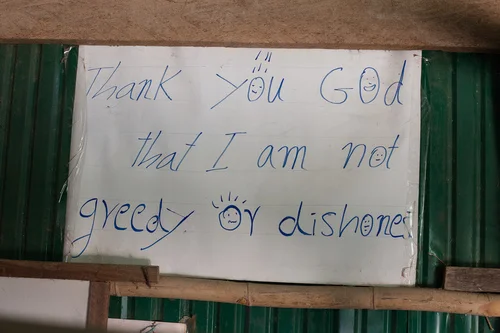 Thank you God
that I am not
greedy. Or dishones